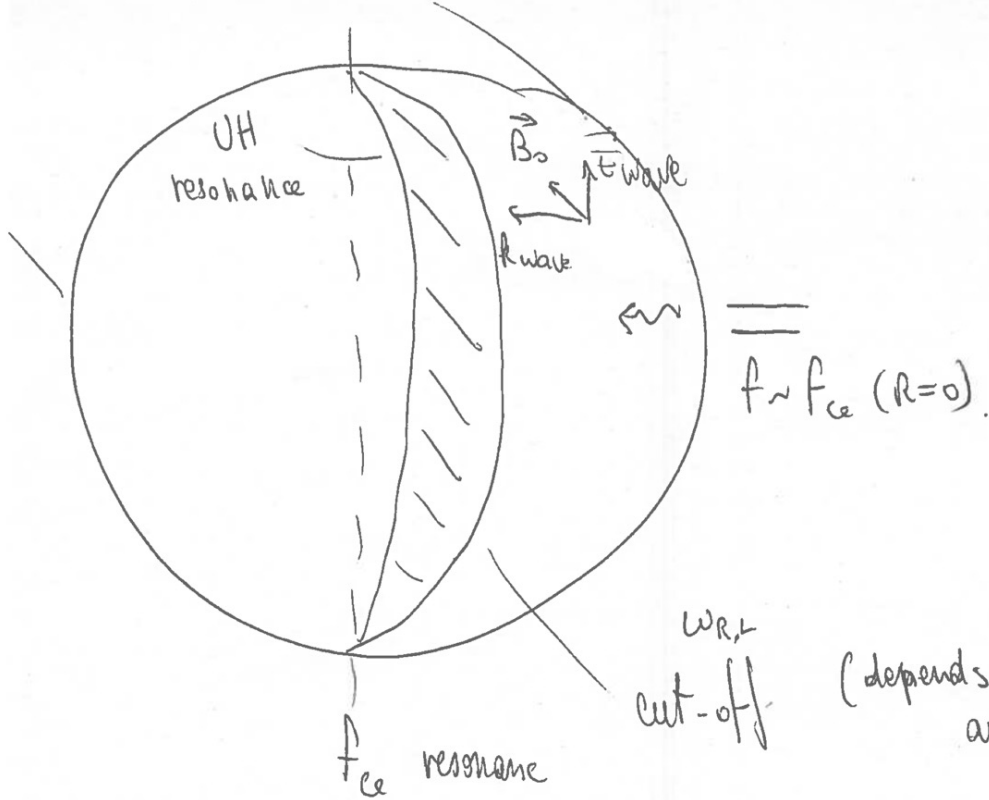 UH
resonance
B₀
E wave
k wave
f ~ f_ce (R=0).
ω_R,L
cut-off (depends
f_ce resonane